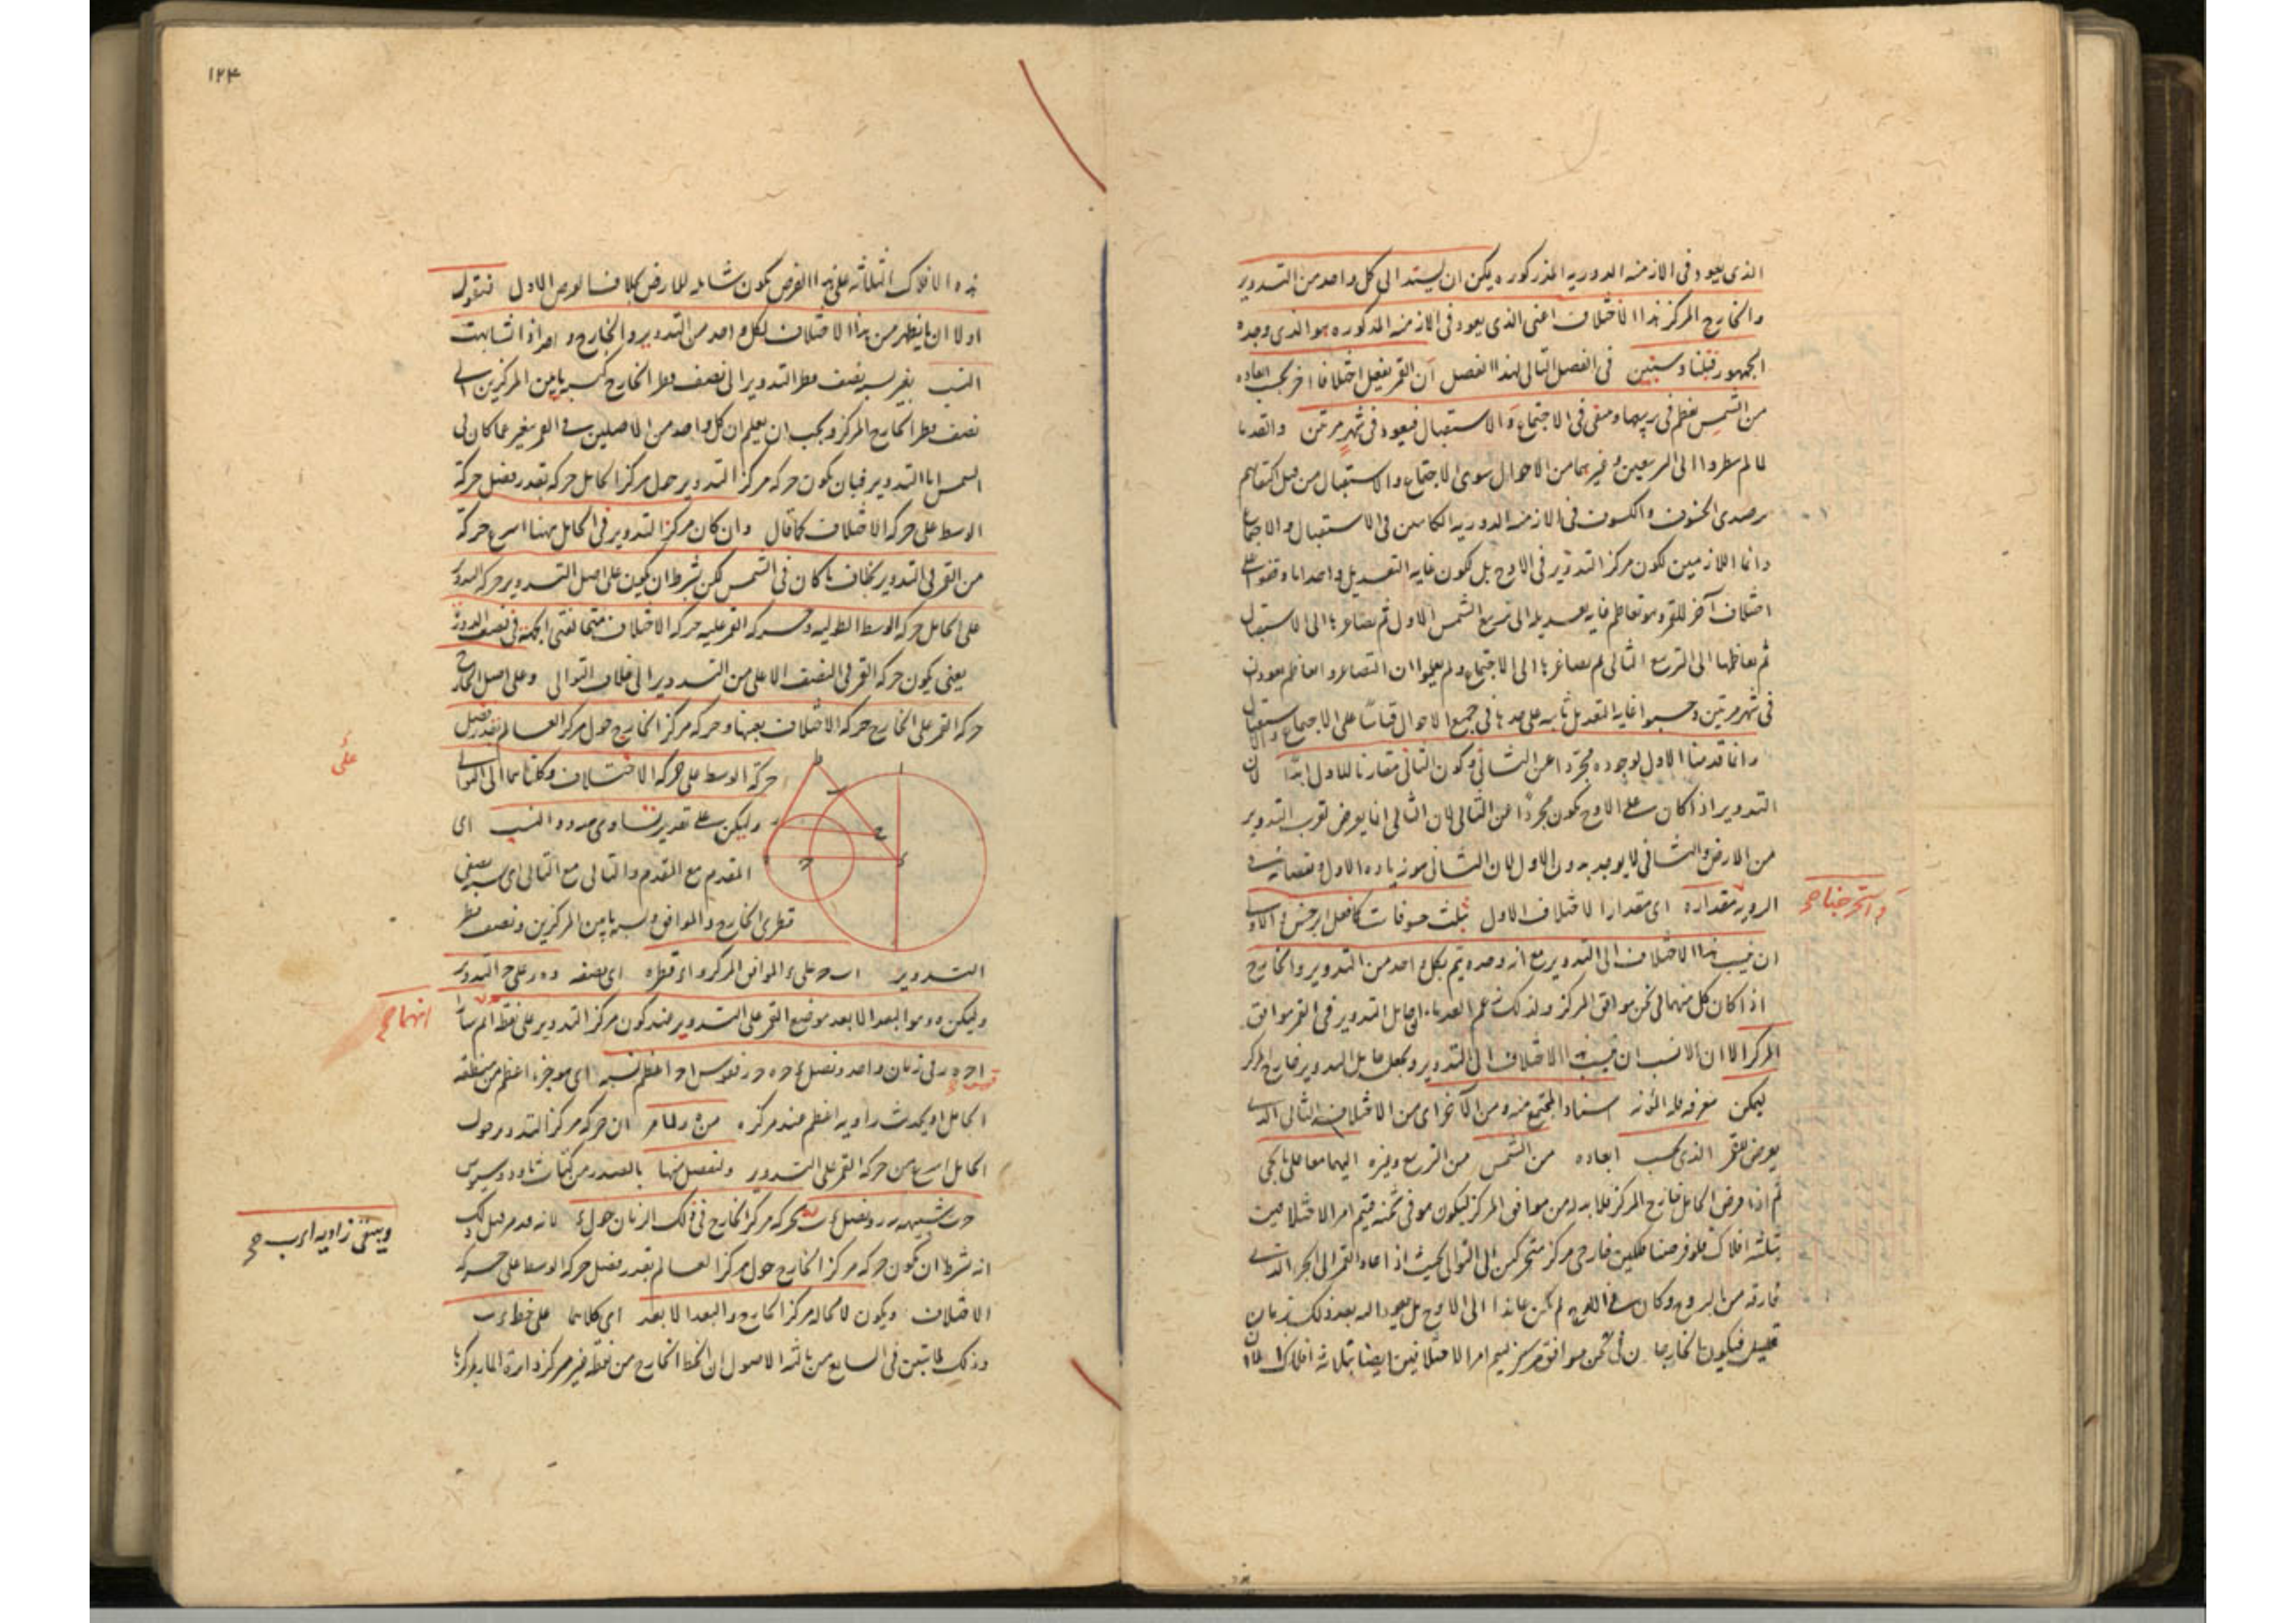 الذى يعود فى الازمنه الدوريه المذكوره يمكن ان يستند الى كل واحد من التدوير
والخارج المركز هذا الاختلاف اعنى الذى يعود فى الازمنه المذكوره هو الذى وجده
الجمهور قبلنا وسنبين فى الفصل التالى لهذا الفصل ان للقمر اختلافا اخر بحسب ابعاده
من الشمس يعظم فى تربيعيها وينتفى فى الاجتماع والاستقبال فيعود فى شهر مرتين والقدما
لما لم ينظروا الى التربيعين وغيرهما من الاحوال سوى الاجتماع والاستقبال من قبل اكتفائهم
برصدى الخسوف والكسوف فى الازمنه الدوريه الكائنين فى الاستقبال والاجتماع
دائما اللازمين لكون مركز التدوير فى الاوج بل لكون غايه التعديل واحدا ما وقفوا على
اختلاف آخر للقمر وهو تعاظم غايه تعديله الى تربيع الشمس الاول ثم تصاغرها الى الاستقبال
ثم تعاظمها الى التربيع الثانى ثم تصاغرها الى الاجتماع ولم يعلموا ان التصاغر والتعاظم يعودان
فى شهر مرتين وحسبوا غايه التعديل ثابته على حدها فى جميع الاحوال قياسًا على الاجتماع والاستقبال
وانما قدمنا الاول لوجوده مجردا عن الثانى وكون الثانى مقارنا للاول ابدًا لان
التدوير اذا كان على الاوج يكون مجردًا عن الثانى لان الثانى انما يعرض لقرب التدوير
من الارض والثانى لا يوجد بدون الاول لان الثانى هو زياده الاول ونقصانه فى
الرويه مقداره اى مقدار الاختلاف الاول بثلث خسوفات كما فعل ابرخس والاولى
واستخرجنا صح
ان ينسب هذا الاختلاف الى التدوير مع انه وحده يتم بكل واحد من التدوير والخارج
اذا كان كل منهما فى ثخن موافق المركز ولذلك زعم القدماء ان حامل التدوير فى القمر موافق
المركز الا ان الانسب ان ينسب هذا الاختلاف الى التدوير ويجعل حامل التدوير خارج المركز
ليمكن معرفه المجتمع منه ومن الآخر اى من الاختلاف الثانى الذى
يعرض للقمر الذى بحسب ابعاده من الشمس من التربيع وغيره اليهما معا على ما يجى
ثم اذا فرض الحامل خارج المركز فلا بد له من موافق المركز ليكون هو فى ثخنه فيتم امر الاختلافين
بثلثه افلاك فلو فرضنا فلكين خارجى مركز متحركين الى التوالى بحيث اذا عاد القمر الى الجزء الذى
فارقه من البروج وكان على الاوج لم يكن عائدا الى الاوج بل يعود اليه بعد ذلك بزمان
قليل فيكون الخارجان فى ثخن موافق مركز ليتم امر الاختلافين ايضا بثلاثه افلاك الا ان
١٢٤
هذه الافلاك الثلثه على هذا الفرض يكون شامله للارض بخلاف الفرض الاول فنقول
اولا ان ما يظهر من هذا الاختلاف لكل واحد من التدوير والخارج واحد اذا تشابهت
النسب يعنى نسبه نصف قطر التدوير الى نصف قطر الخارج كنسبه ما بين المركزين الى
نصف قطر الخارج المركز ويجب ان يعلم ان كل واحد من الاصلين فى القمر يتغير عما كان فى
الشمس اما التدوير فبان يكون حركه مركز التدوير حول مركز الحامل حركه بقدر فضل حركة
الوسط على حركه الاختلاف كما قال وان كان مركز التدوير فى الحامل هنا اسرع حركة
من القمر فى التدوير بخلاف ما كان فى الشمس لكن بشرط ان يكون على اصل التدوير حركه التدوير
على الحامل حركه الوسط الطوليه وحركه القمر عليه حركه الاختلاف متخالفتى الجهة فى نصف الدورة
يعنى يكون حركه القمر فى النصف الاعلى من التدوير الى خلاف التوالى وعلى اصل الخارج
حركه القمر على الخارج حركه الاختلاف بعينها وحركه مركز الخارج حول مركز العالم بقدر فضل
حركة الوسط على حركه الاختلاف وكلتاهما الى التوالى
على
وليكن على تقدير تساوى حدود النسب اى
المقدم مع المقدم والتالى مع التالى اى نسبه نصفى
قطرى الخارج والموافق ونسبه ما بين المركزين ونصف قطر
التدوير ا ب ح على ء الموافق المركز و ا ء قطره اى نصفه و ه ر على ح التدوير
وليكن ه وهو البعد الابعد موضع القمر على التدوير عند كون مركز التدوير على نقطه ا ثم سارا
انهما صح
ا ح ه ر فى زمان واحد ونصل ء ح ه ح ر فقوس ا ح اعظم نسبه اى هو جزء اعظم من منطقه
الحامل او يحدث زاويه اعظم عند مركزه من ه ر لما مر ان حركه مركز التدوير حول
الحامل اسرع من حركه القمر على التدوير ونفصل منها
شبيهه ه ر ونصل ء ب لحركه مركز الخارج فى ذلك الزمان حول ء لانه قد مر قبل ذلك
ويبقى زاويه ا ء ب صح
انه شرط ان يكون حركه مركز الخارج حول مركز العالم بقدر فضل حركه الوسط على حركه
الاختلاف ويكون لا محاله مركز الخارج والبعد الابعد اى كلاهما على خط ء ب
وذلك لما تبين فى السابع من ثالثه الاصول ان الخط الخارج من نقطه غير مركز دائرة المار بمركزها